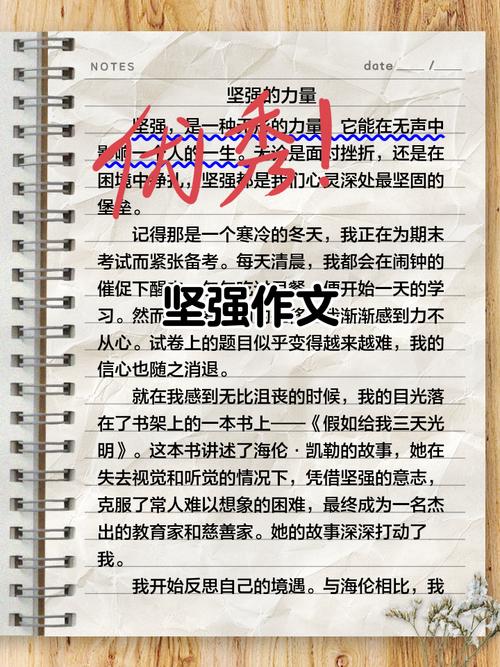 NOTES
date ____ / ____
坚强的力量
坚强，是一种无形的力量，它能在无声中
影响一个人的一生。无论是面对挫折，还是在
困境中挣扎，坚强都是我们心灵深处最坚固的
堡垒。
优秀！
记得那是一个寒冷的冬天，我正在为期末
考试而紧张备考。每天清晨，我都会在闹钟的
催促下醒 便开始一天的学
坚强作文
习。然而 我渐渐感到力不
从心。试卷上的题目似乎变得越来越难，我的
信心也随之消退。
就在我感到无比沮丧的时候，我的目光落
在了书架上的一本书上——《假如给我三天光
明》。这本书讲述了海伦·凯勒的故事，她在
失去视觉和听觉的情况下，凭借坚强的意志，
克服了常人难以想象的困难，最终成为一名杰
出的教育家和慈善家。她的故事深深打动了
我。
我开始反思自己的境遇。与海伦相比，我